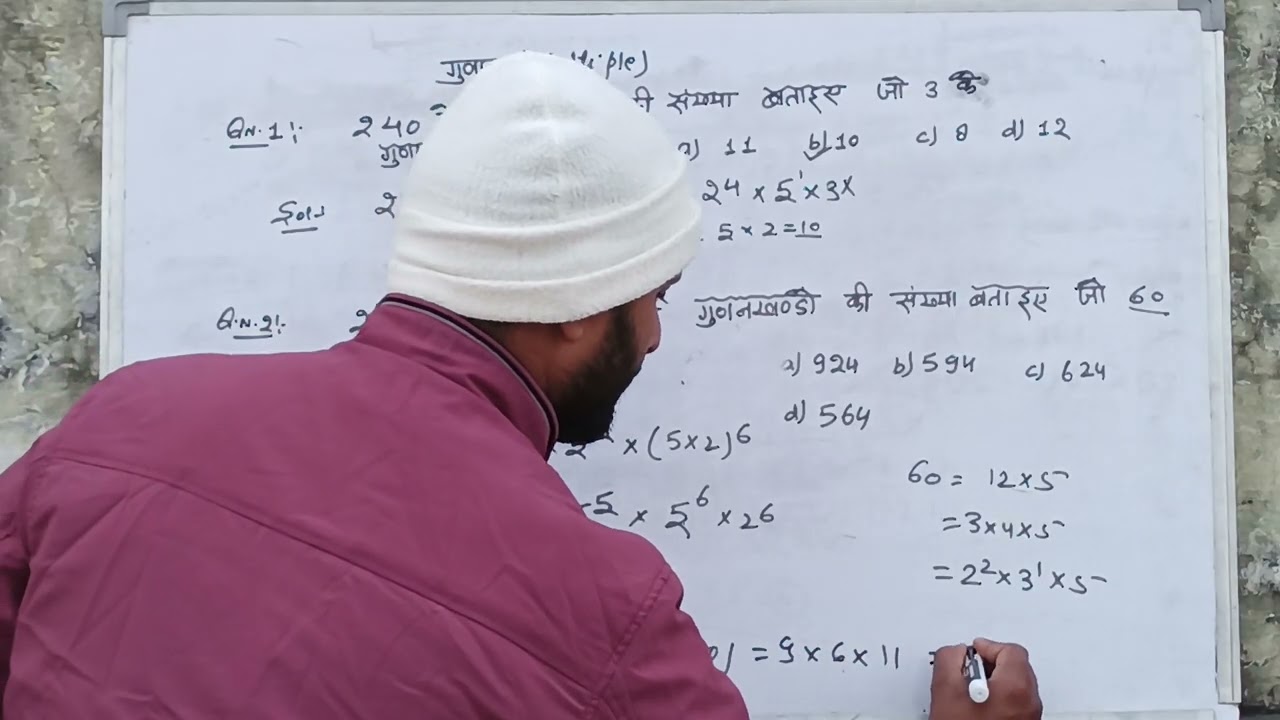 गुणन iple)
Qn.1:- 240 की संख्या बताइए जो 3 के
गुण a) 11 b) 10 c) 8 d) 12
Sol:- 2 2⁴ × 5¹ × 3×
5 × 2 = 10
Q.N.2:- 2 गुणनखण्डो की संख्या बताइए जो 60
a) 924 b) 594 c) 624
d) 564
× (5×2)⁶
5 × 5⁶ × 2⁶
60 = 12×5
= 3×4×5
= 2² × 3¹ × 5
= 9 × 6 × 11 =